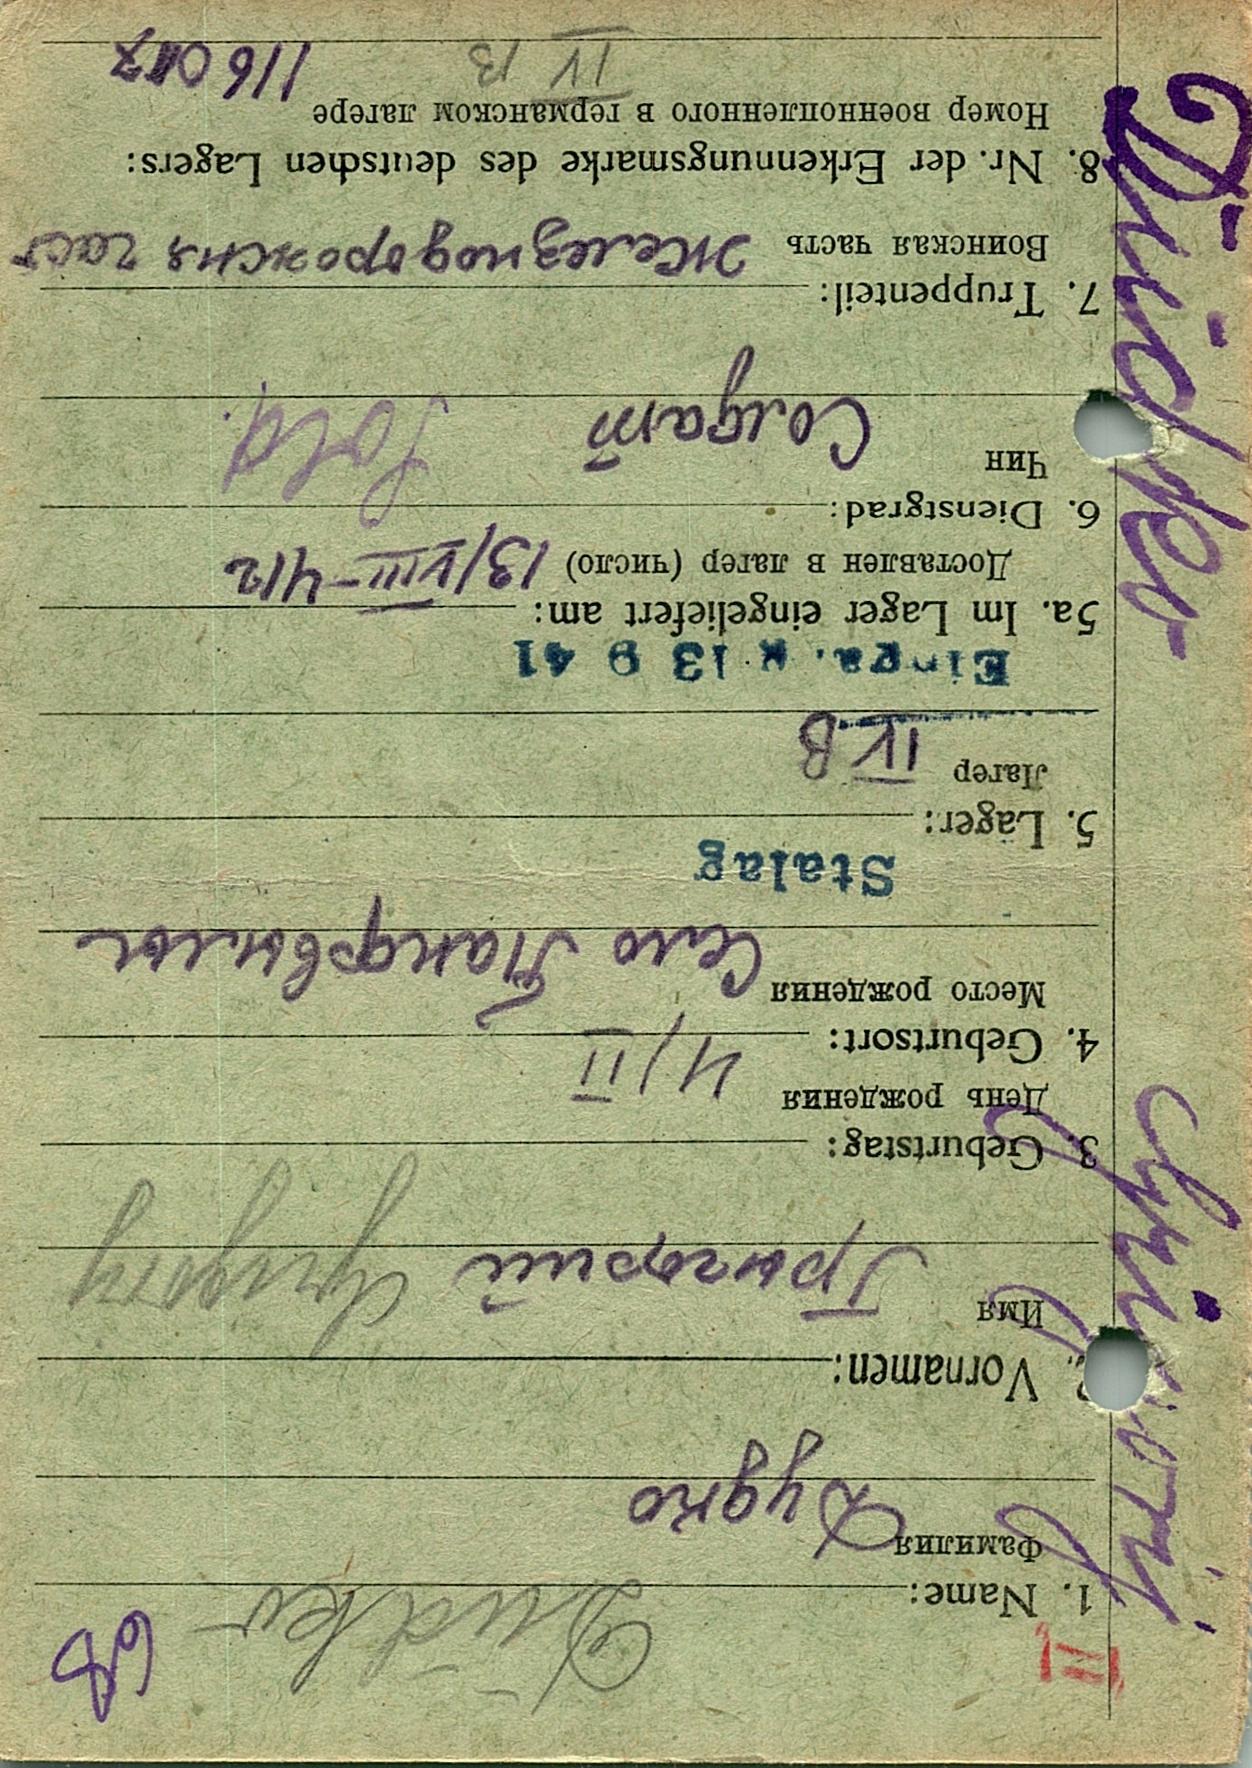 Dudko
Grigorij
II
6B
Dudko
1. Name:
Фамилия Дудко
Vornamen:
Имя Грыгорий Grigory
3. Geburtstag:
День рождения 4/II
4. Geburtsort:
Место рождения Село
Stalag
5. Lager:
Лагер IV B
13 9 41
5a. Im Lager eingeliefert am:
Доставлен в лагер (число) 13/VIII-412
6. Dienstgrad:
Чин Солдат Sold.
7. Truppenteil:
Воинская часть Железнодорожня част
8. Nr. der Erkennungsmarke des deutschen Lagers:
Номер военнопленного в германском лагере
IV B 116017